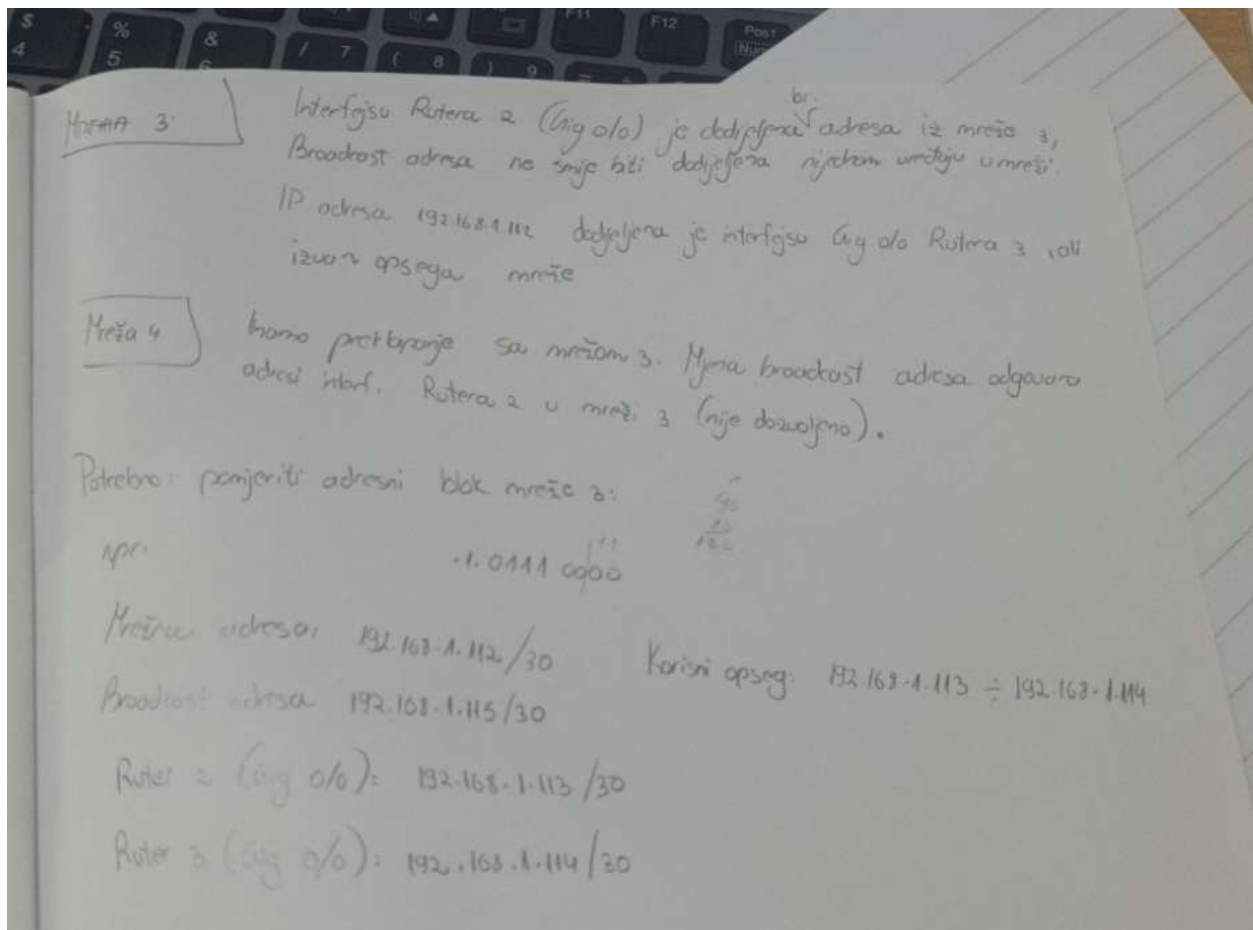 $
4
%
5
&
6
/ 7
( 8
) 9
F11
F12
Post
br.
Мрежа 3
Interfejsu Rutera 2 (Gig 0/0) je dodijeljena adresa iz mreže 3,
Broadcast adresa ne smije biti dodijeljena nijednom uređaju u mreži.
IP adresa 192.168.1.112 dodjeljena je interfejsu Gig 0/0 Rutera 3, ali
izvan opsega mreže
Mreža 4
Imamo preklapanje sa mrežom 3. Njena broadcast adresa odgovara
adresi interf. Rutera 2 u mreži 3 (nije dozvoljeno).
Potrebno: pomjeriti adresni blok mreže 3:
npr.
.1.0111 0000
Mrežna adresa: 192.168.1.112/30
Korisni opseg: 192.168.1.113 ÷ 192.168.1.114
Broadcast adresa 192.168.1.115/30
Ruter 2 (Gig 0/0): 192.168.1.113/30
Ruter 3 (Gig 0/0): 192.168.1.114/30